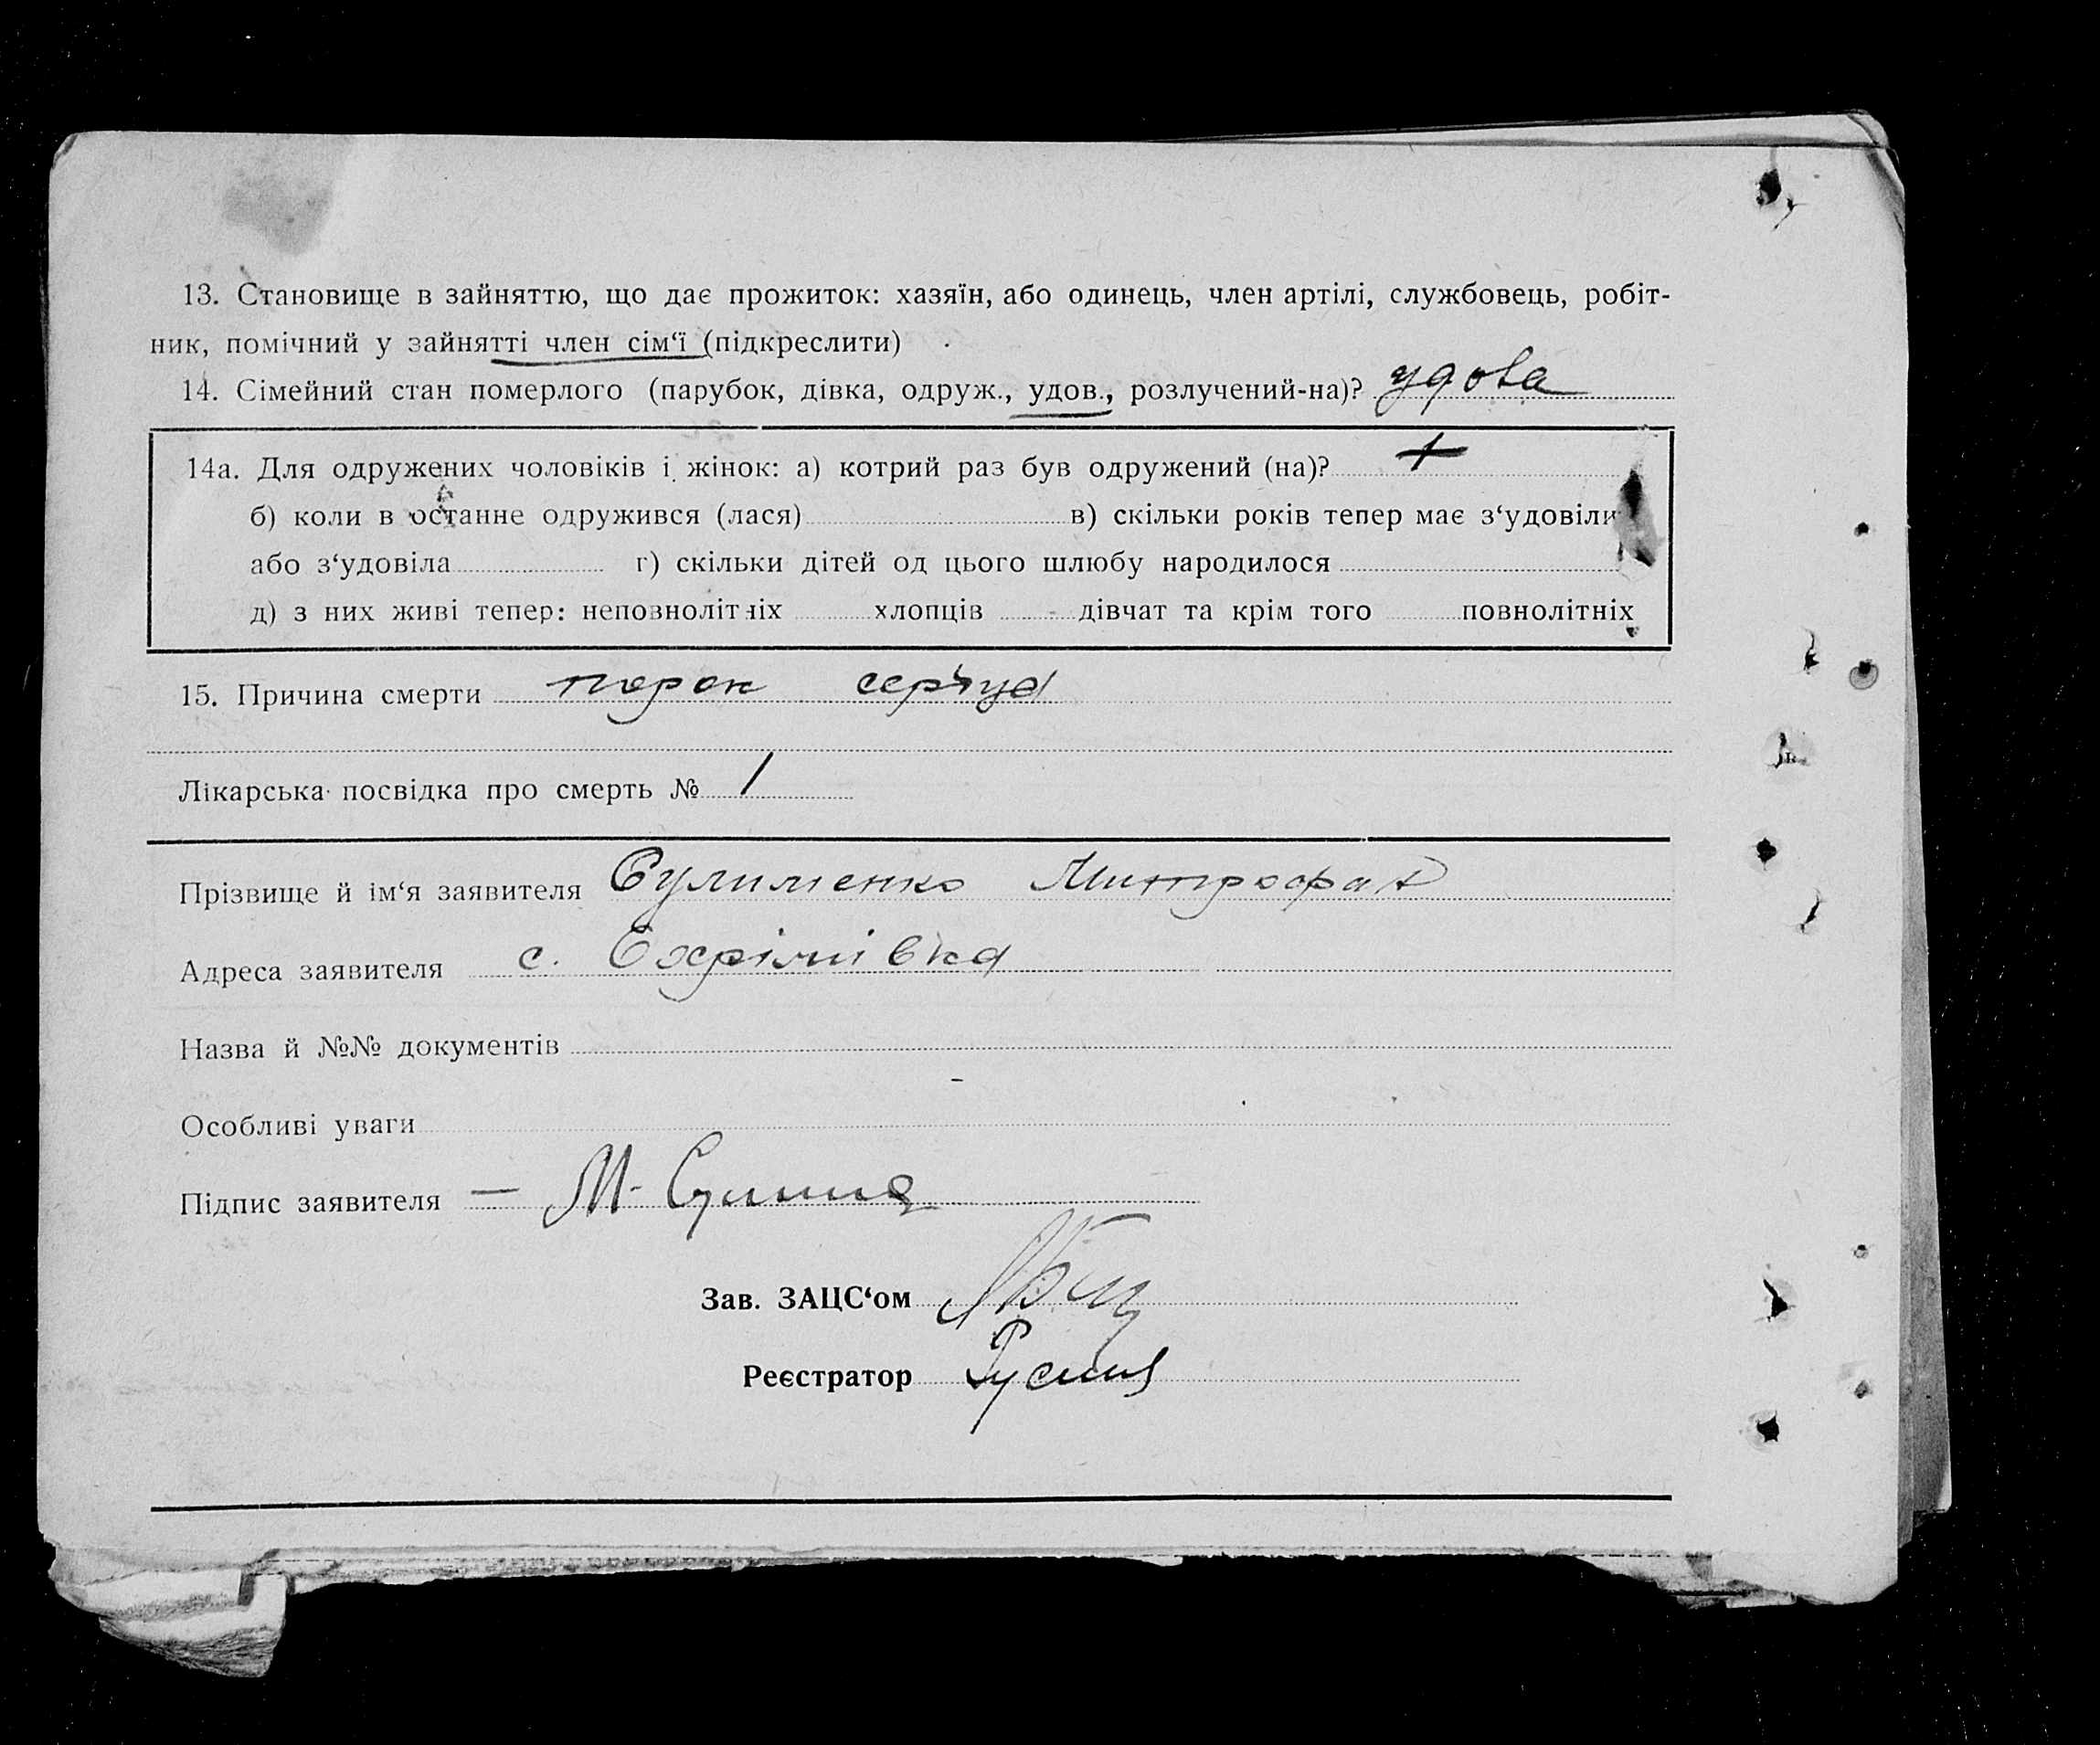 13. Становище в зайняттю, що дає прожиток: хазяїн, або одинець, член артілі, службовець, робіт-
ник, помічний у зайнятті член сім‘ї (підкреслити)
14. Сімейний стан померлого (парубок, дівка, одруж., удов., розлучений-на)? удова
14а. Для одружених чоловіків і жінок: а) котрий раз був одружений (на)?
б) коли в останнє одружився (лася) в) скільки років тепер має з‘удовіли
або з‘удовіла г) скільки дітей од цього шлюбу народилося
д) з них живі тепер: неповнолітніх хлопців дівчат та крім того повнолітніх
15. Причина смерти порок серьця
Лікарська посвідка про смерть № /
Прізвище й ім‘я заявителя Сулименко Митрофан
Адреса заявителя с. Єхрімівка
Назва й №№ документів
Особливі уваги
Підпис заявителя — М. Сулиме
Зав. ЗАЦС‘ом
Реєстратор